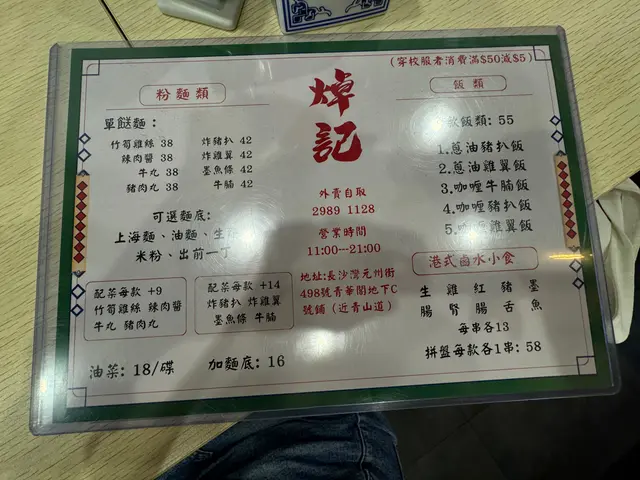 (穿校服者消費滿$50減$5)
焯記
外賣自取
2989 1128
營業時間
11:00—21:00
地址:長沙灣元州街
498號青華閣地下C
號鋪（近青山道）
粉麵類
單餸麵：
竹筍雞絲 38 炸豬扒 42
辣肉醬 38 炸雞翼 42
牛丸 38 墨魚條 42
豬肉丸 38 牛腩 42
可選麵底：
上海麵、油麵、生
米粉、出前一丁
配菜每款 +9
竹筍雞絲 辣肉醬
牛丸 豬肉丸
配菜每款 +14
炸豬扒 炸雞翼
墨魚條 牛腩
油菜: 18/碟 加麵底: 16
飯類
飯類: 55
1.蔥油豬扒飯
2.蔥油雞翼飯
3.咖喱牛腩飯
4.咖喱豬扒飯
5.咖喱雞翼飯
港式鹵水小食
生腸 雞腎 紅腸 豬舌 墨魚
每串各13
拼盤每款各1串: 58